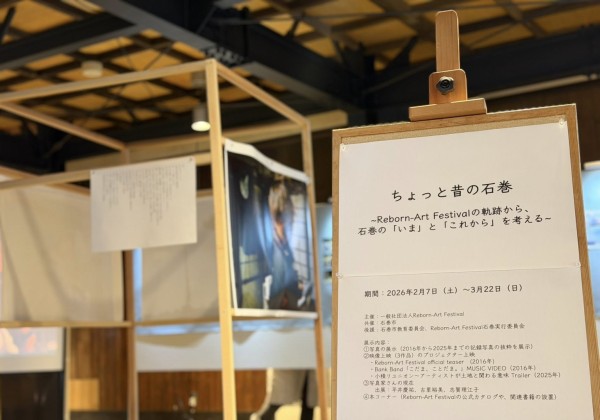 ちょっと昔の石巻
–Reborn-Art Festivalの軌跡から、
石巻の「いま」と「これから」を考える–
期間:2026年2月7日(土)〜3月22日(日)
主催:一般社団法人Reborn-Art Festival
共催:石巻市
後援:石巻市教育委員会、Reborn-Art Festival石巻実行委員会
展示内容:
①写真の展示(2016年から2025年までの記録写真の抜粋を展示)
②映像上映(3作品)のプロジェクター上映
・Reborn-Art Festival official teaser(2016年)
・Bank Band「こだま、ことだま。」MUSIC VIDEO(2016年)
・小積リユニオン〜アーティストが土地と関わる意味 Trailer(2025年)
③写真家さんの視点
出展:平井慶祐、古里裕美、志賀理江子
④本コーナー(Reborn-Art Festivalの公式カタログや、関連書籍の設置)